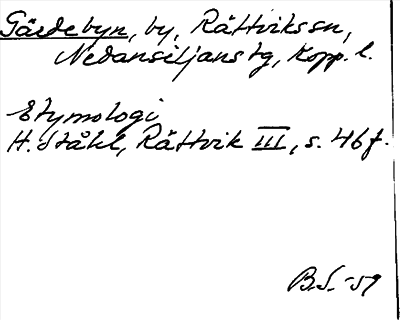 Gärdebyn, by, Rättvikssn,
Nedansiljanstg, Kopp. l.
Etymologi
H. Ståhl, Rättvik III, s. 46 f.
B.S. -59